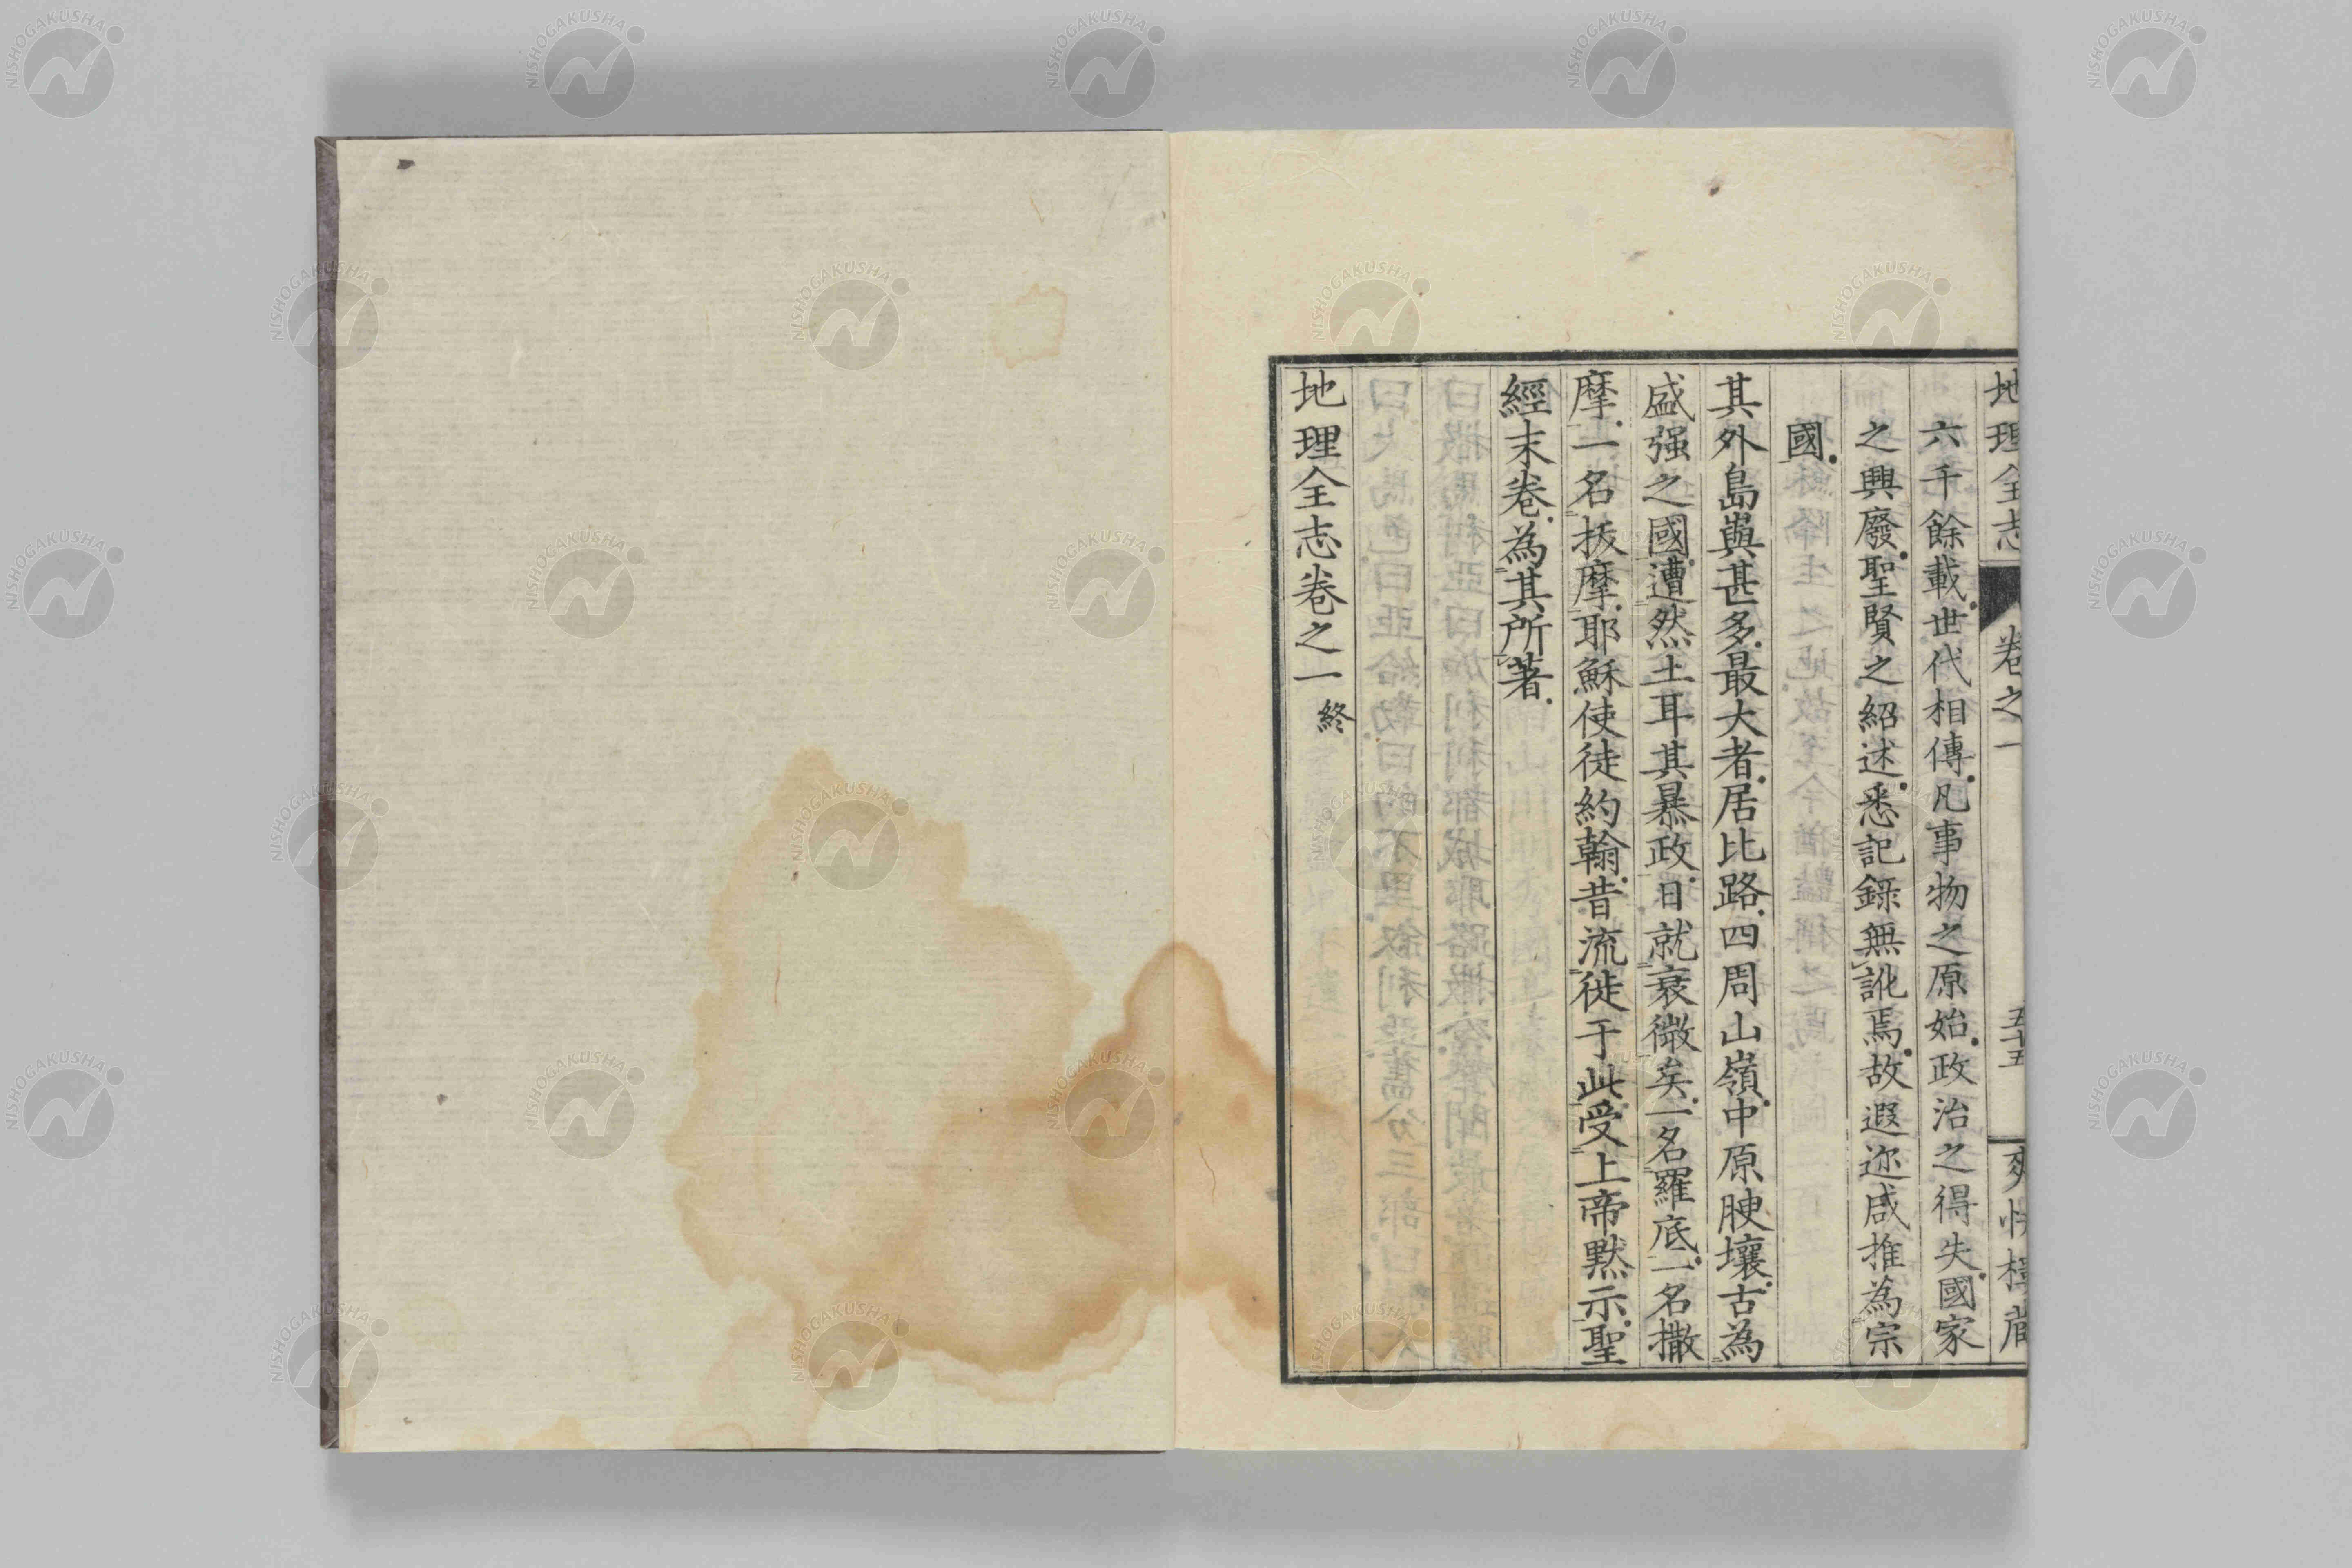 地理全志 卷之一 五十五
六千餘載世代相傳凡事物之原始政治之得失國家
之興廢聖賢之紹述悉記錄無訛焉故遐迩咸推為宗
國
其外島與甚多最大者居比路四周山嶺中原腴壤古為
盛强之國遭然土耳其暴政日就衰微矣一名羅底一名撒
摩一名拔摩耶穌使徒約翰昔流徙于此受上帝默示聖
經末卷為其所著
地理全志卷之一 終